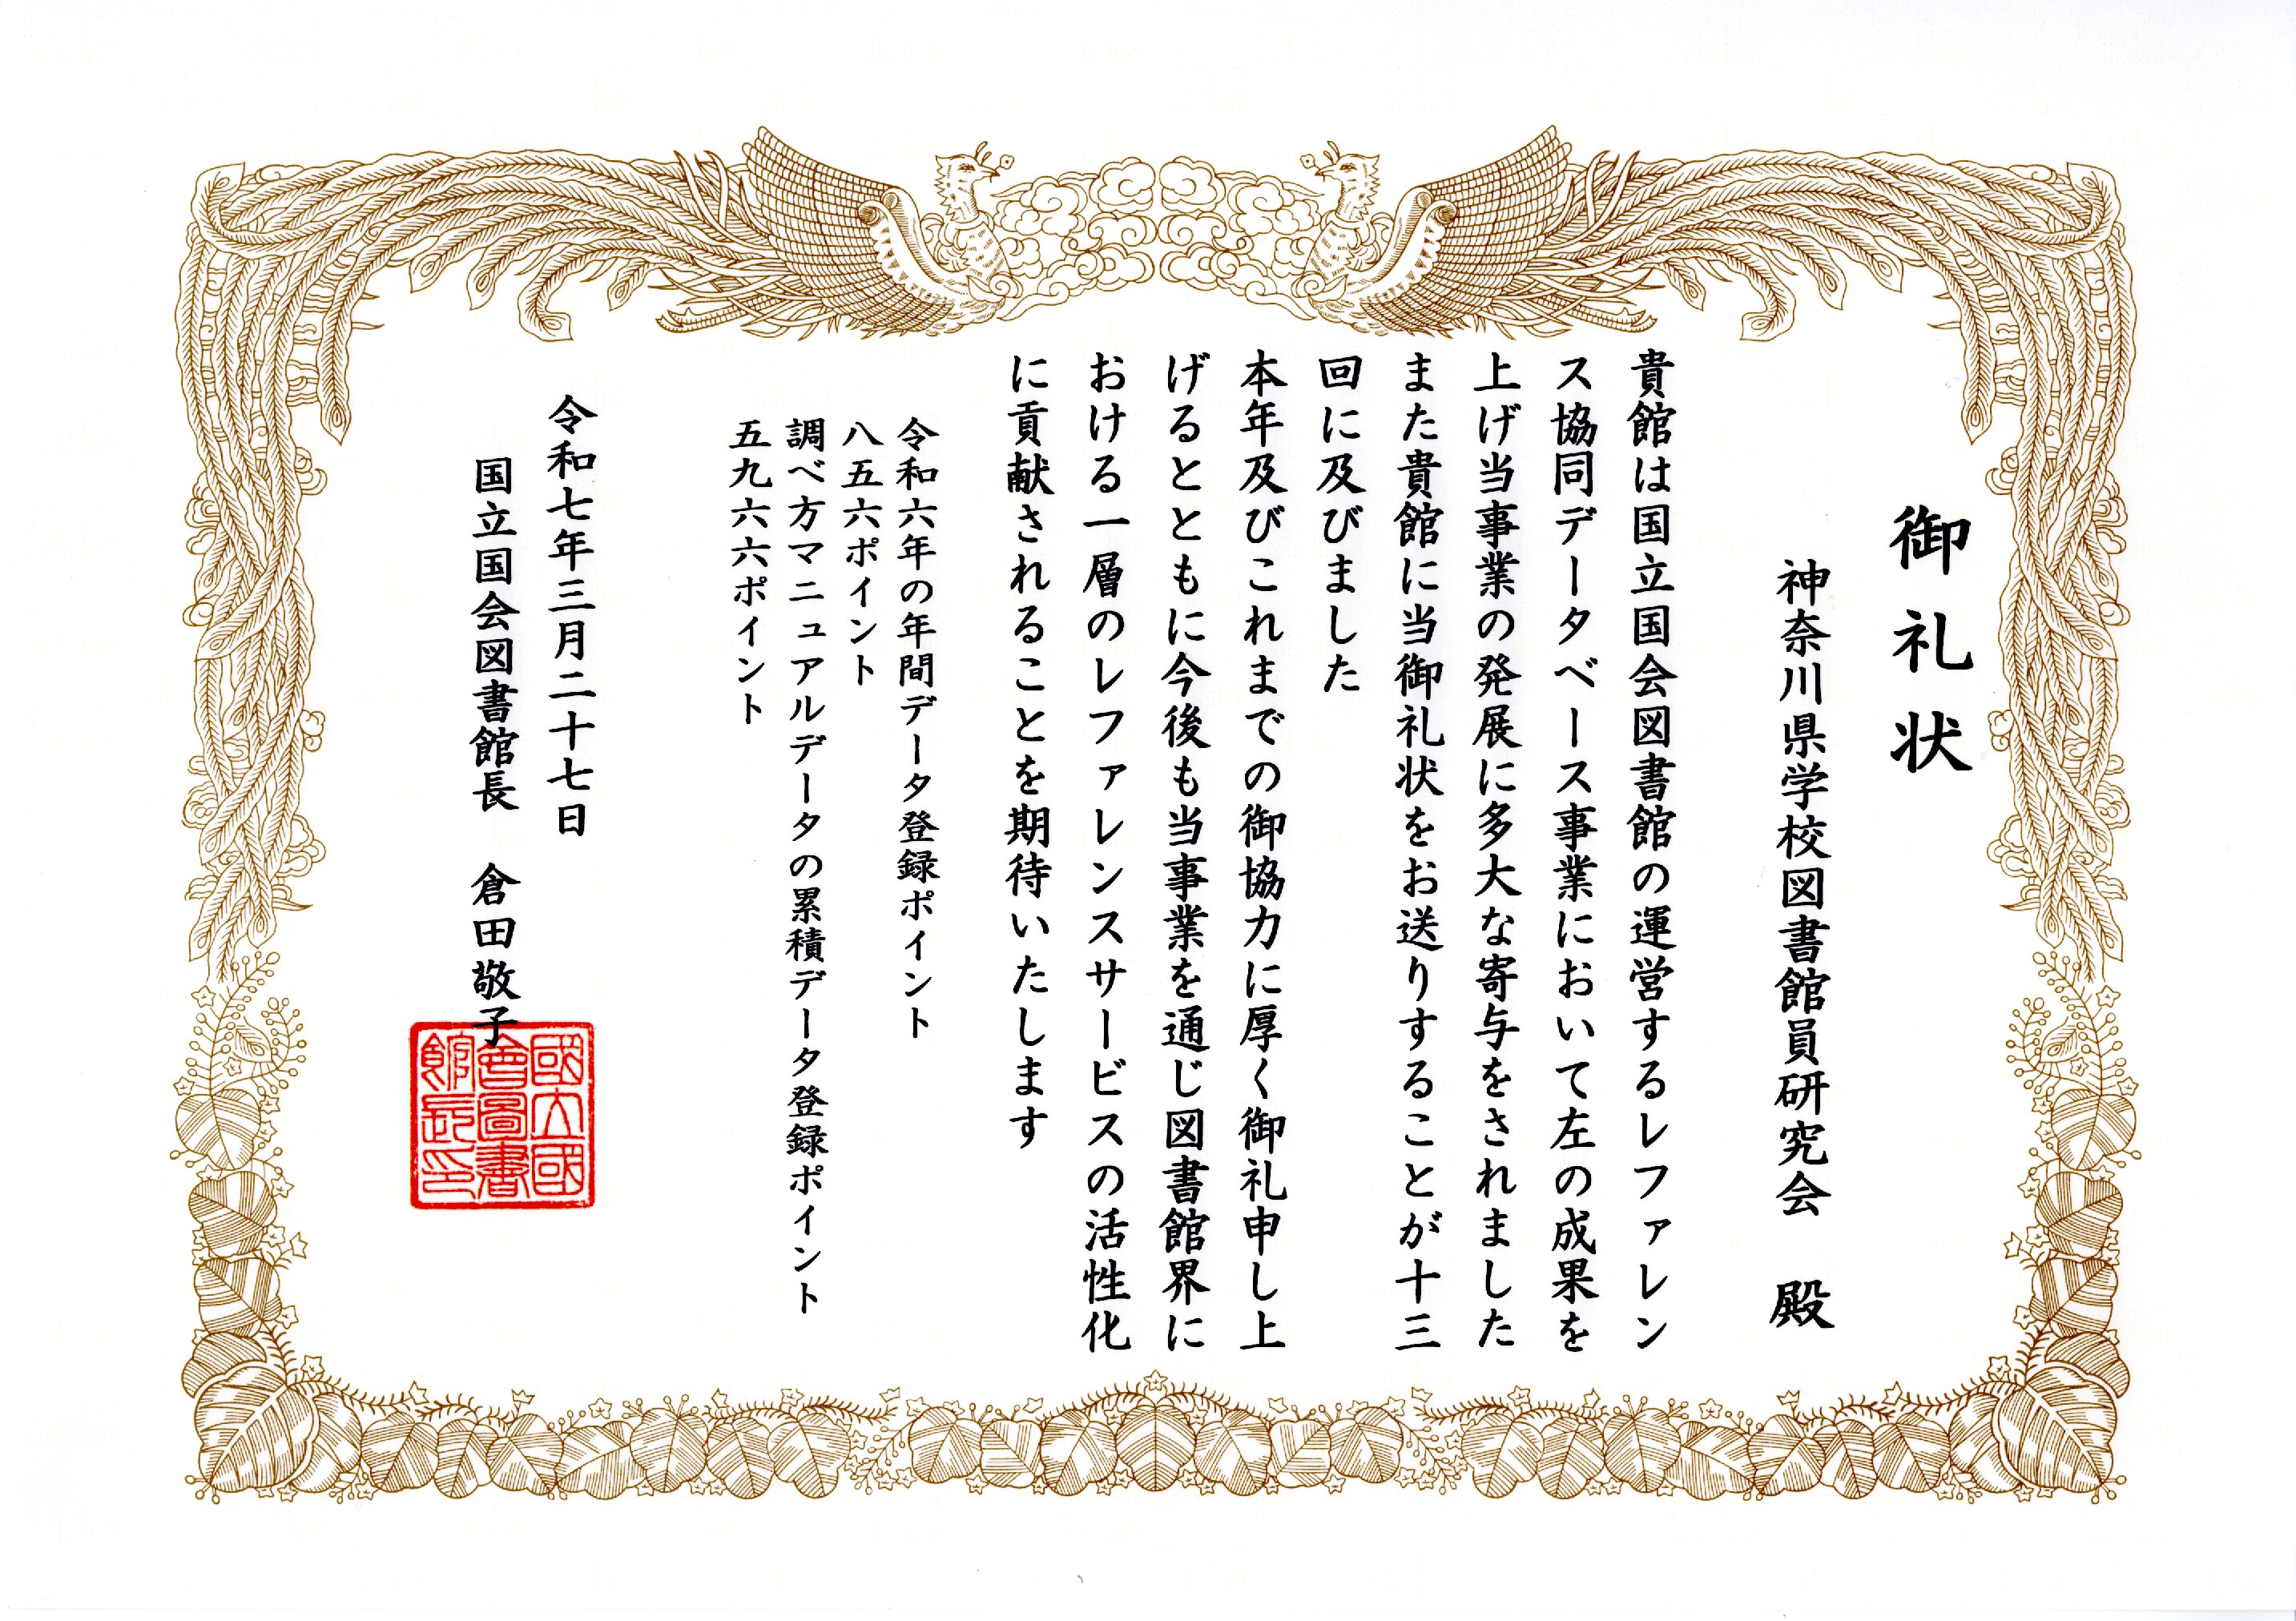 御礼状
神奈川県学校図書館員研究会　殿
貴館は国立国会図書館の運営するレファレン
ス協同データベース事業において左の成果を
上げ当事業の発展に多大な寄与をされました
また貴館に当御礼状をお送りすることが十三
回に及びました
本年及びこれまでの御協力に厚く御礼申し上
げるとともに今後も当事業を通じ図書館界に
おける一層のレファレンスサービスの活性化
に貢献されることを期待いたします
令和六年の年間データ登録ポイント
八五六ポイント
調べ方マニュアルデータの累積データ登録ポイント
五九六六ポイント
令和七年三月二十七日
国立国会図書館長　倉田敬子
國立國
會圖書
館長印